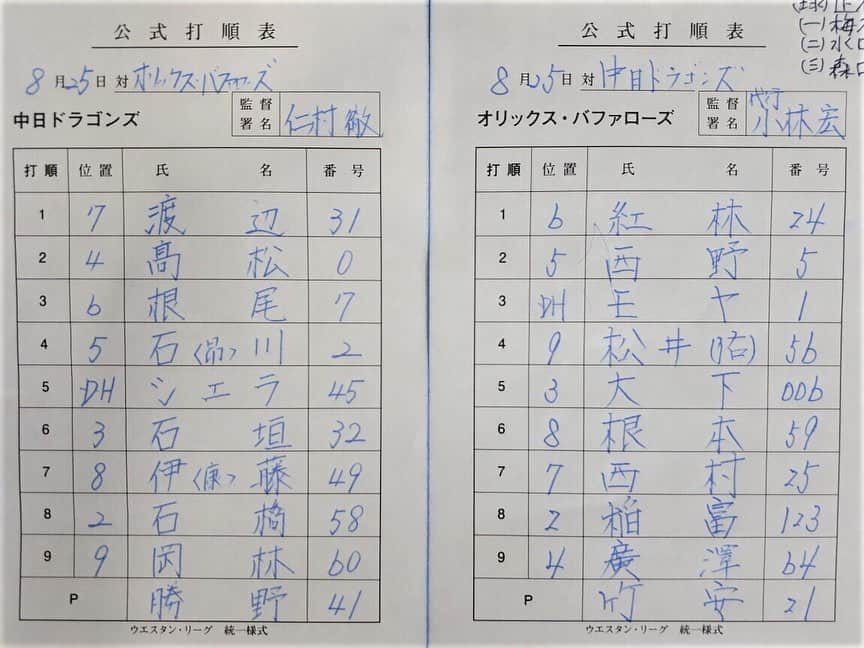 公式打順表
8月25日 対 オリックス・バファローズ
中日ドラゴンズ 監督署名 仁村徹
打順 位置 氏名 番号
1 7 渡辺 31
2 4 髙松 0
3 6 根尾 7
4 5 石〈昂〉川 2
5 DH シエラ 45
6 3 石垣 32
7 8 伊〈康〉藤 49
8 2 石橋 58
9 9 岡林 60
P 勝野 41
ウエスタン・リーグ 統一様式
公式打順表
8月25日 対 中日ドラゴンズ
オリックス・バファローズ 監督署名 代行 小林宏
打順 位置 氏名 番号
1 6 紅林 24
2 5 西野 5
3 DH モヤ 1
4 9 松井(佑) 56
5 3 大下 006
6 8 根本 59
7 7 西村 25
8 2 稲富 123
9 4 廣澤 64
P 竹安 21
ウエスタン・リーグ 統一様式
(球)
(一) 梅
(二) 水口
(三) 森口